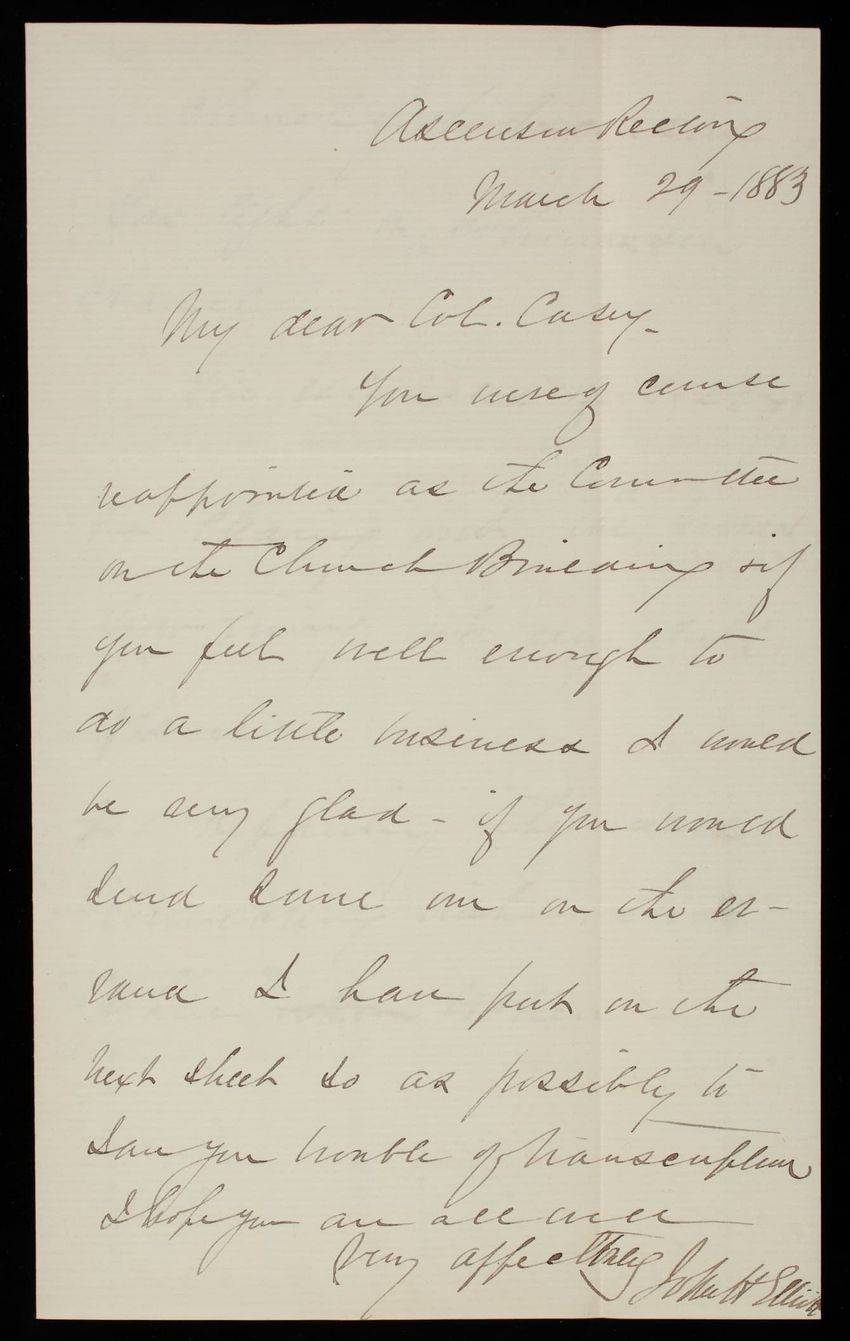 Ascension Rectory
March 29 - 1883
My dear Col. Casey -
You were of course
reappointed as the Committee
on the Church Building & if
you feel well enough to
do a little business I would
be very glad - if you would
send some one on the er-
rand I have put on the
next sheet so as possibly to
save you trouble of transcription
I hope you are all well
Very affectly
John H Elliott